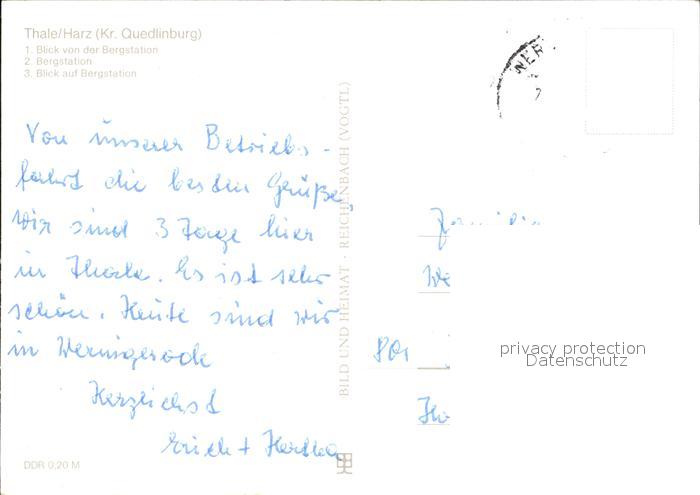 Thale/Harz (Kr. Quedlinburg)
1. Blick von der Bergstation
2. Bergstation
3. Blick auf Bergstation
Von unserer Betriebs-
fahrt die besten Grüße,
wir sind 3 Tage hier
in Thale. Es ist sehr
schön. Heute sind wir
in Wernigerode
Herzlichst
Erich + Hertha
DDR 0,20 M
BILD UND HEIMAT · REICHENBACH (VOGTL)
WER
801
privacy protection
Datenschutz